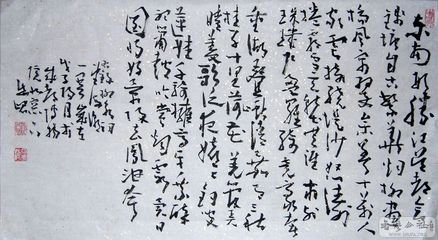 東南形勝江吴都會
錢塘自古繁華烟柳畫
橋風簾翠幕參差十萬人
家雲樹繞堤沙怒濤
捲霜雪天塹無涯市列
珠璣户盈羅綺競豪奢
重湖疊巘清嘉有三秋
桂子十里荷花羌管弄
晴菱歌泛夜嬉嬉釣叟
蓮娃千騎擁高牙乘醉
聽簫鼓吟賞烟霞異日
圖將好景歸去鳳池夸